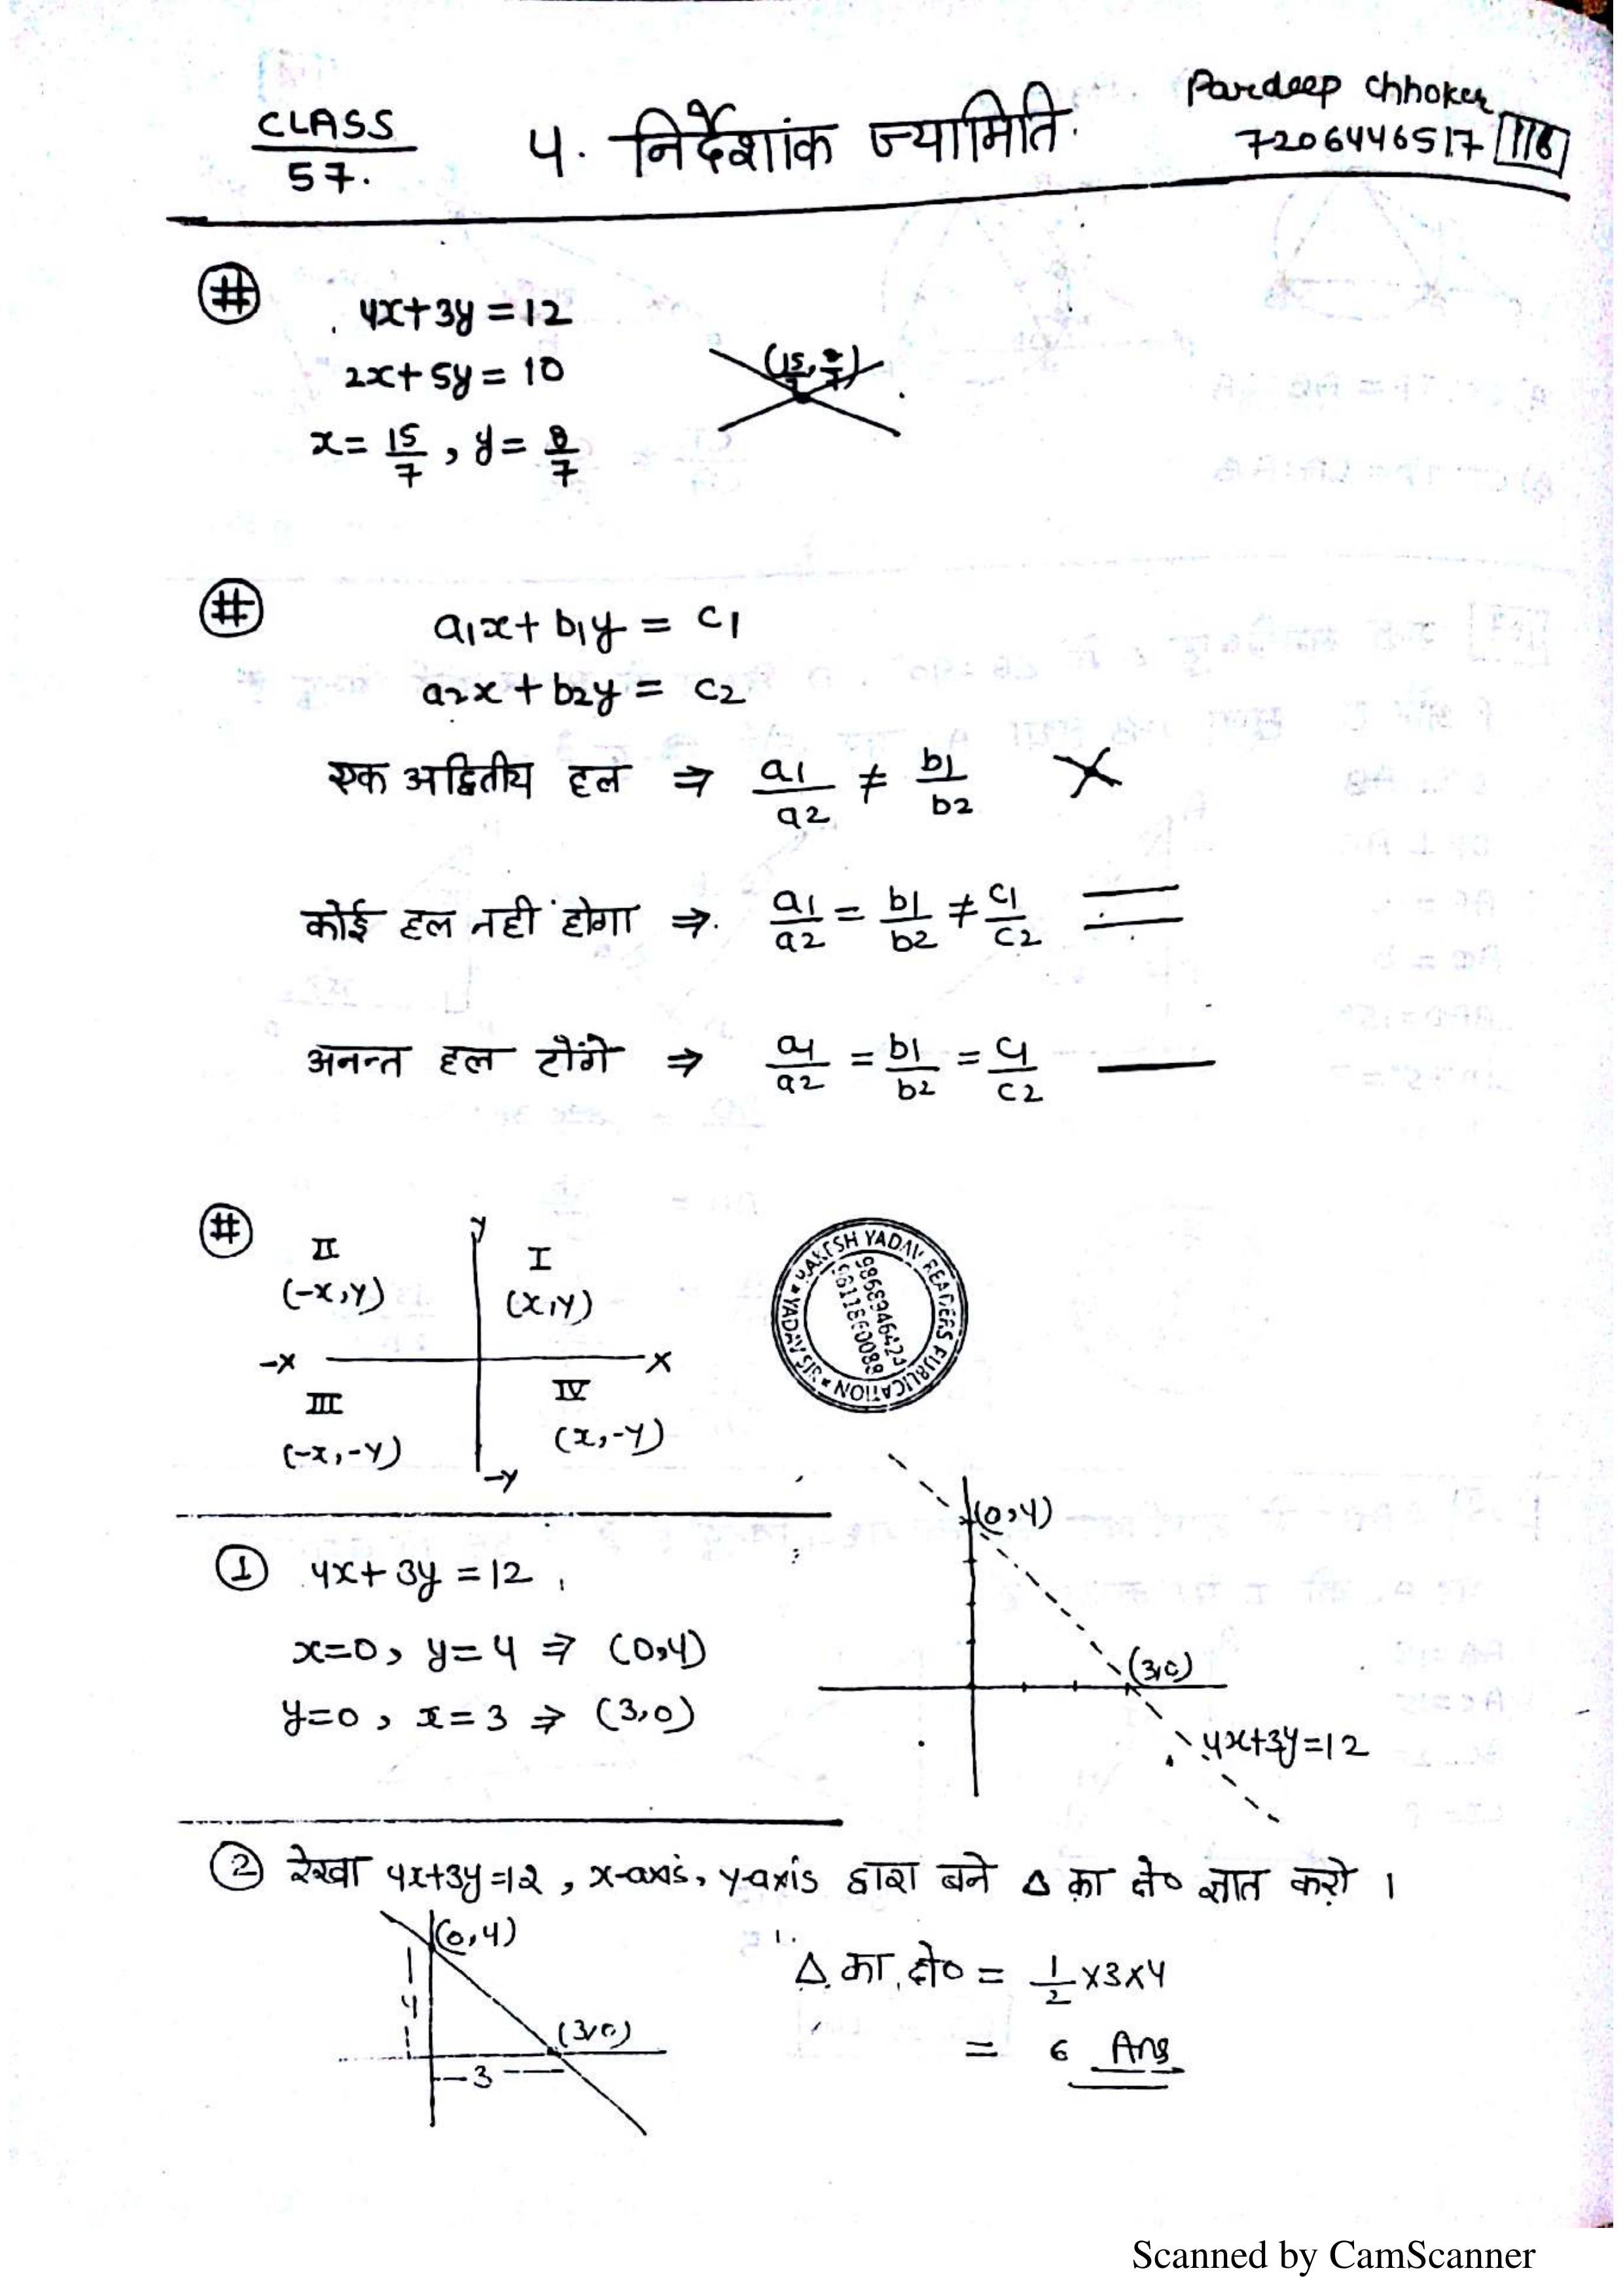 CLASS
57.
4. निर्देशांक ज्यामिति.
Pardeep Chhoker
7206446517 116
# 4x+3y=12
2x+5y=10
x=15/7, y=8/7
(15/7, 8/7)
# a1x+b1y = c1
a2x+b2y = c2
एक अद्वितीय हल ⇒ a1/a2 ≠ b1/b2
कोई हल नहीं होगा ⇒ a1/a2 = b1/b2 ≠ c1/c2
अनन्त हल होंगे ⇒ a1/a2 = b1/b2 = c1/c2
#
Y
II
I
(-x,y)
(x,y)
-X
X
III
IV
(-x,-y)
(x,-y)
-Y
RAKESH YADAV READERS PUBLICATION * YADAV SIR *
9868946424
8800391198
① 4x+3y=12
x=0, y=4 ⇒ (0,4)
y=0, x=3 ⇒ (3,0)
(0,4)
(3,0)
4x+3y=12
② रेखा 4x+3y=12, x-axis, y-axis द्वारा बने Δ का क्षे० ज्ञात करो ।
(0,4)
4
(3,0)
3
Δ का क्षे० = 1/2 x3x4
= 6 Ans
Scanned by CamScanner